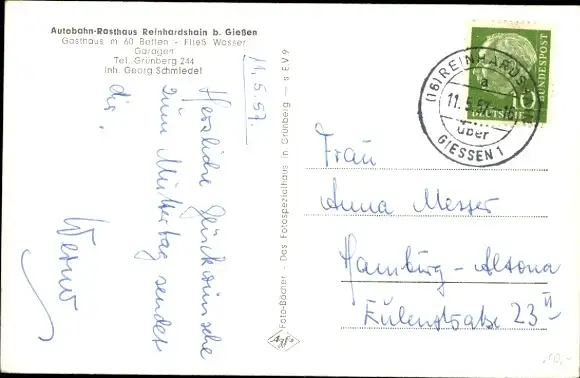 Autobahn-Rasthaus Reinhardshain b. Gießen
Gasthaus m. 60 Betten - Fließ. Wasser
Garagen
Tel. Grünberg 244
Inh. Georg Schmiedel
11.5.57.
Herzliche Glückwünsche
zum Muttertag sendet
dir.
Werner
Foto-Bücher - Das Fotospezialhaus in Grünberg — s EV 9
Agfa
(16) REINHARDS
a
11.5.57
über
GIESSEN 1
10
DEUTSCHE
BUNDESPOST
Frau
Anna Messer
Hamburg-Altona
Eulenstraße 23 II
10,-